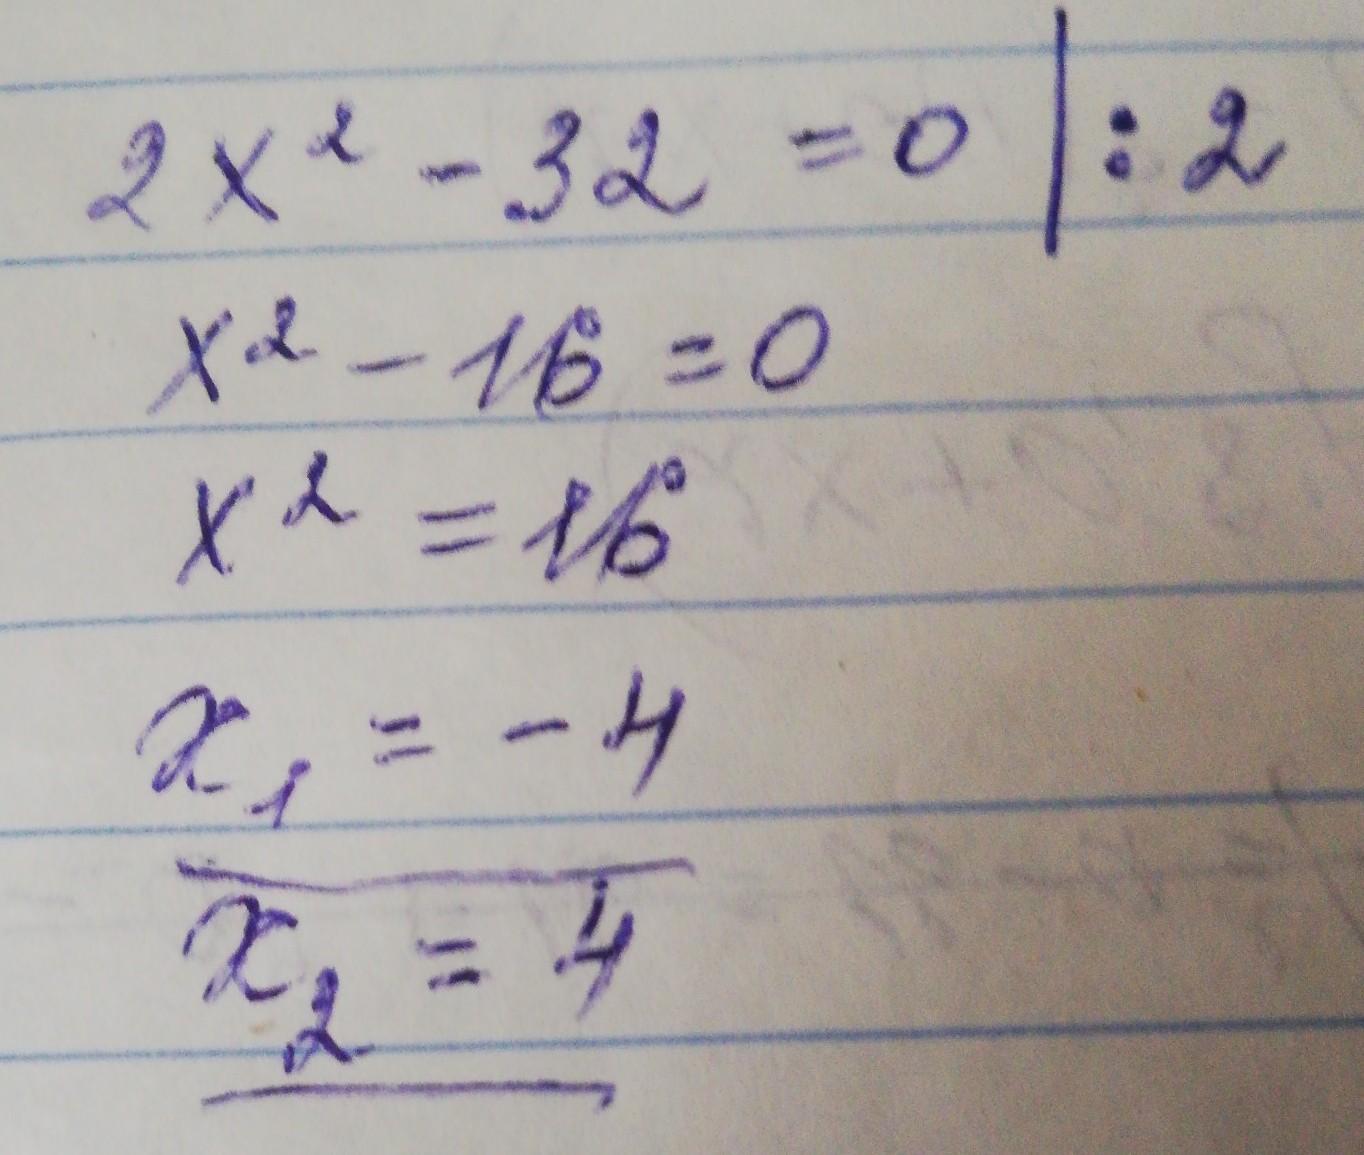 2x² - 32 = 0 | : 2
x² - 16 = 0
x² = 16
x₁ = - 4
x₂ = 4